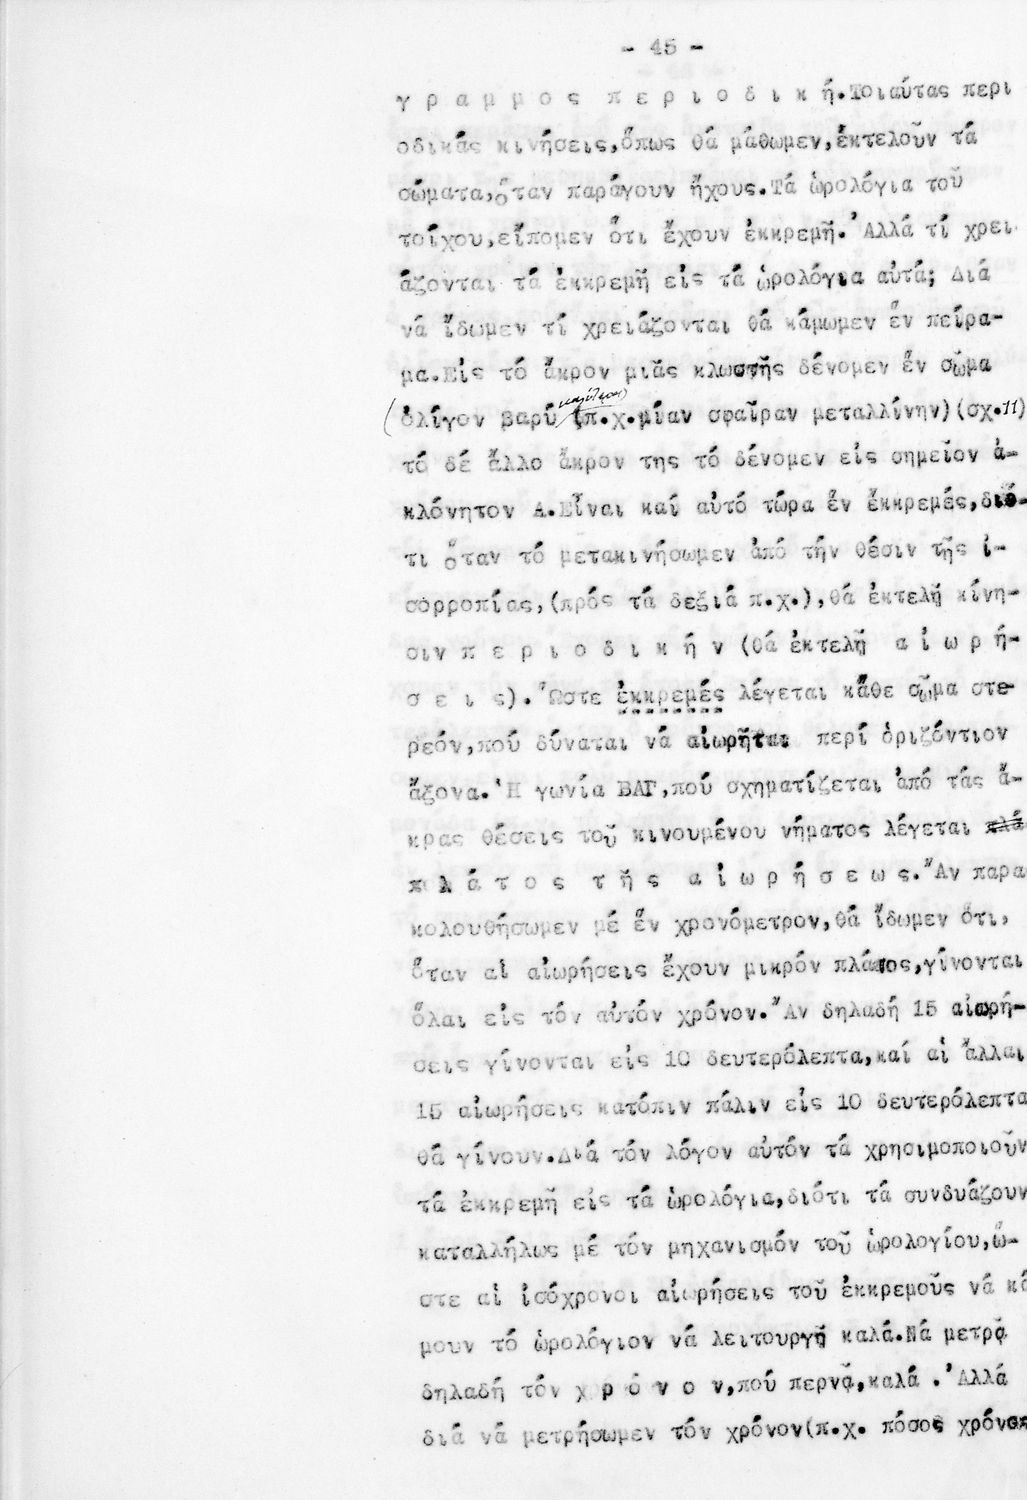 - 45 -
γ ρ α μ μ ο ς   π ε ρ ι ο δ ι κ ή.Τοιαύτας περι
οδικάς κινήσεις,ὅπως θά μάθωμεν,ἐκτελοῦν τά
σώματα,ὅταν παράγουν ἤχους.Τά ὡρολόγια τοῦ
τοίχου,εἴπομεν ὅτι ἔχουν ἐκκρεμῆ.Ἀλλά τί χρει
άζονται τά ἐκκρεμῆ εἰς τά ὡρολόγια αὐτά; Διά
νά ἴδωμεν τί χρειάζονται θά κάμωμεν ἕν πείρα-
μα.Εἰς τό ἄκρον μιᾶς κλωστῆς δένομεν ἕν σῶμα
ὀλίγον βαρύ (π.χ.μίαν σφαῖραν μεταλλίνην)(σχ.11)
τό δέ ἄλλο ἄκρον της τό δένομεν εἰς σημεῖον ἀ-
κλόνητον Α.Εἶναι καί αὐτό τώρα ἕν ἐκκρεμές,διό-
τι ὅταν τό μετακινήσωμεν ἀπό τήν θέσιν τῆς ἰ-
σορροπίας,(πρός τά δεξιά π.χ.),θά ἐκτελῇ κίνη-
σιν π ε ρ ι ο δ ι κ ή ν (θά ἐκτελῇ  α ἰ ω ρ ή-
σ ε ι ς). Ὥστε ἐκκρεμές λέγεται κάθε σῶμα στε
ρεόν,πού δύναται νά αἰωρῆται  περί ὁριζόντιον
ἄξονα. Ἡ γωνία ΒΑΓ,πού σχηματίζεται ἀπό τάς ἄ-
κρας θέσεις τοῦ κινουμένου νήματος λέγεται πλά
π λ ά τ ο ς  τ ῆ ς  α ἰ ω ρ ή σ ε ω ς.Ἄν παρα
κολουθήσωμεν μέ ἕν χρονόμετρον,θά ἴδωμεν ὅτι,
ὅταν αἱ αἰωρήσεις ἔχουν μικρόν πλάτος,γίνονται
ὅλαι εἰς τόν αὐτόν χρόνον.Ἄν δηλαδή 15 αἰωρή-
σεις γίνονται εἰς 10 δευτερόλεπτα,καί αἱ ἄλλαι
15 αἰωρήσεις κατόπιν πάλιν εἰς 10 δευτερόλεπτα
θά γίνουν.Διά τόν λόγον αὐτόν τά χρησιμοποιοῦν
τά ἐκκρεμῆ εἰς τά ὡρολόγια,διότι τά συνδυάζουν
καταλλήλως μέ τόν μηχανισμόν τοῦ ὡρολογίου,ὥ-
στε αἱ ἰσόχρονοι αἰωρήσεις τοῦ ἐκκρεμοῦς νά κά
μουν τό ὡρολόγιον νά λειτουργῇ καλά.Νά μετρᾷ
δηλαδή τόν χ ρ ό ν ο ν,πού περνᾷ,καλά .Ἀλλά
διά νά μετρήσωμεν τόν χρόνον(π.χ. πόσος χρόνος